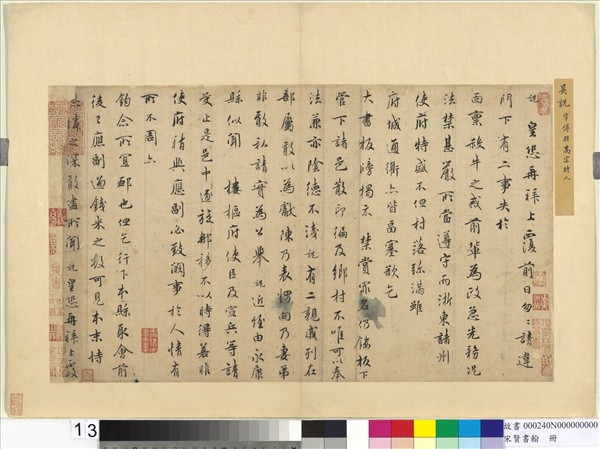 吳說 字傅朋高宗時人
說 皇恐再拜上覆前日匆匆請違
門下有二事失於
面稟殺牛之戒前輩為政急先務況
法禁甚嚴所當遵守而浙東諸州
使府特盛不但村落絲滿雖
府城通衢亦皆畐塞欲乞
大書板牓揭示禁賞罪名仍鏤板下
管下諸邑散印徧及鄉村不唯可以奉
法兼亦陰德不淺說有二親戚列在
部屬敢以為獻陳乃表甥向乃妻弟
非敢私請實為公舉說近經由永康
縣似聞 樓樞府使臣及宣兵等請
受止是邑中逐旋那移不以時得若非
使府稍與應副必致闕事於人情有
所不周亦
鈞念所宜卹也但乞行下本縣取會前
後應副過錢米之數可見本末恃
憐之深敢盡所聞 說皇恐再拜上覆
13
故書 000240N000000000
宋賢書翰 冊